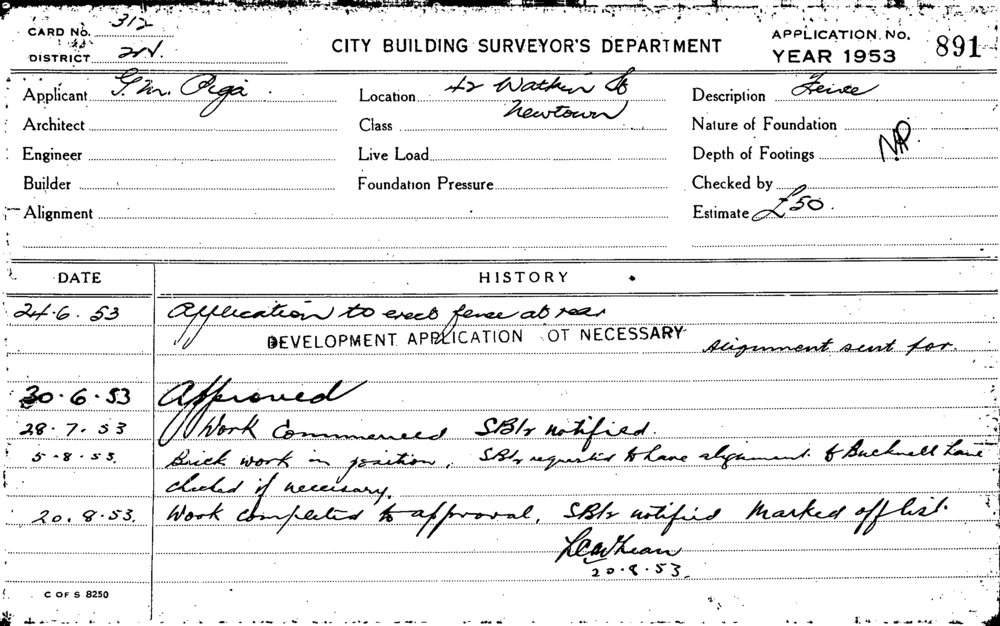 CARD NO. 312
DISTRICT
CITY BUILDING SURVEYOR'S DEPARTMENT
APPLICATION NO.
YEAR 1953
891
Applicant G. M. Piga
Location 42 Watkin St
Newtown
Description Fence
Architect
Class
Nature of Foundation
Engineer
Live Load
Depth of Footings
Builder
Foundation Pressure
Checked by
Alignment
Estimate £50.
DATE HISTORY
24.6.53 Application to erect fence at rear
DEVELOPMENT APPLICATION OT NECESSARY
Alignment sent for.
30.6.53 Approved
28.7.53 Work Commenced SBIr notified.
5-8-53. Brick work in position. SBIr requested to have alignment to Bucknell Lane
checked if necessary.
20.8.53. Work completed to approval. SBIr notified Marked off list.
20.8.53.
C OF S 8250